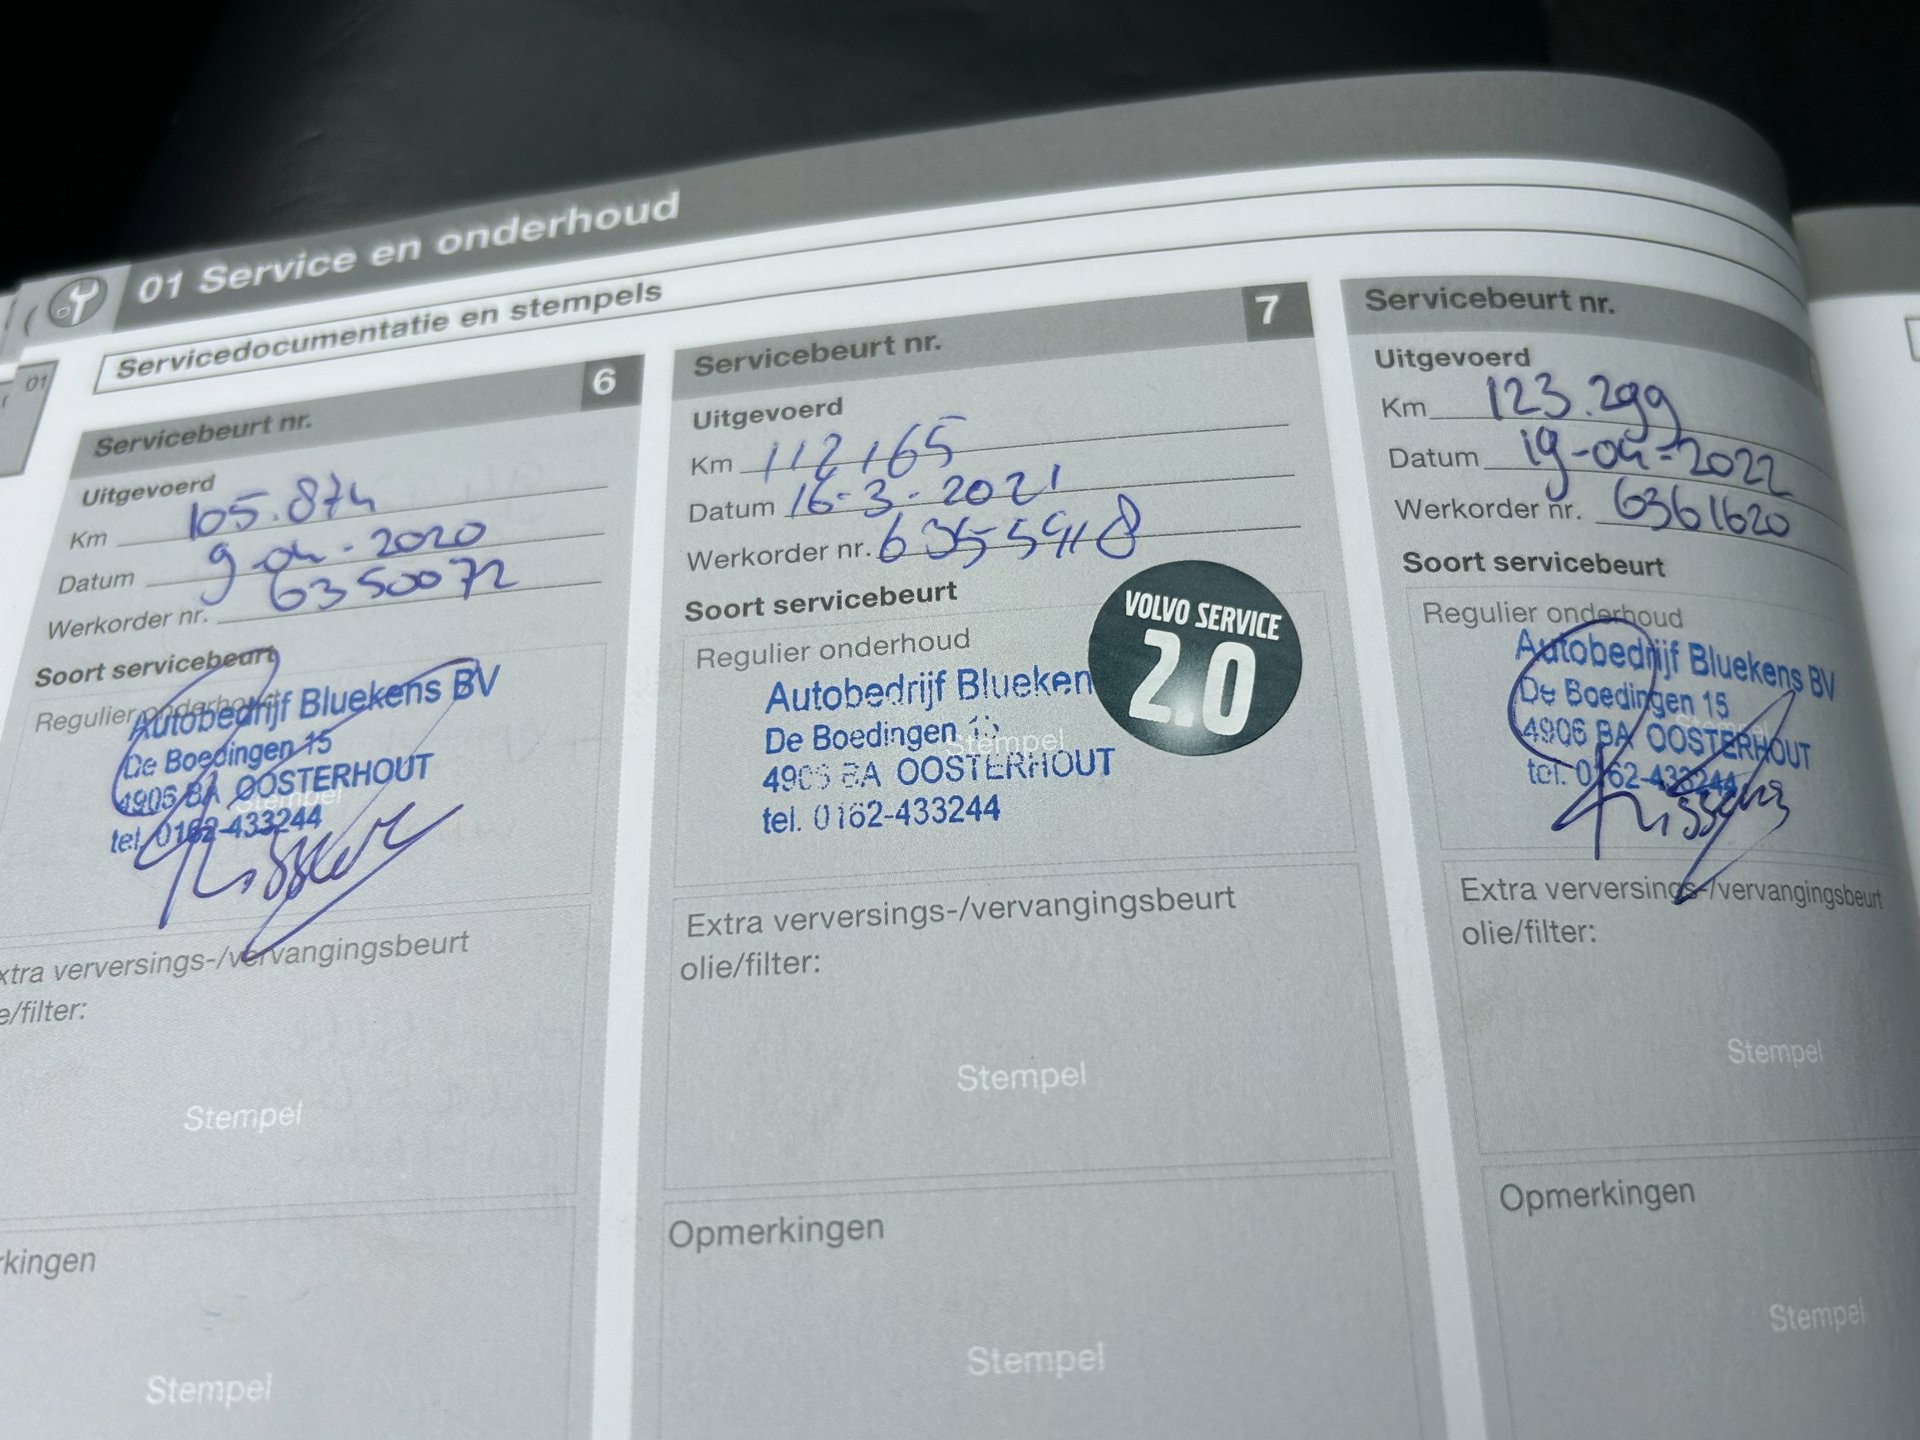 01 Service en onderhoud
Servicedocumentatie en stempels
01
Servicebeurt nr. 6
Uitgevoerd
Km 105.874
Datum 9-04-2020
Werkorder nr. 6350072
Soort servicebeurt
Regulier onderhoud
Autobedrijf Bluekens BV
De Boedingen 15
4906 BA OOSTERHOUT
Stempel
tel. 0162-433244
xtra verversings-/vervangingsbeurt
e/filter:
Stempel
rkingen
Stempel
Servicebeurt nr. 7
Uitgevoerd
Km 112165
Datum 16-3-2021
Werkorder nr. 6355918
Soort servicebeurt
Regulier onderhoud
VOLVO SERVICE
2.0
Autobedrijf Blueken
De Boedingen 15
Stempel
4906 BA OOSTERHOUT
tel. 0162-433244
Extra verversings-/vervangingsbeurt
olie/filter:
Stempel
Opmerkingen
Stempel
Servicebeurt nr.
Uitgevoerd
Km 123.299
Datum 19-04-2022
Werkorder nr. 6361620
Soort servicebeurt
Regulier onderhoud
Autobedrijf Bluekens BV
De Boedingen 15
Stempel
4906 BA OOSTERHOUT
tel. 0162-433244
Extra verversings-/vervangingsbeurt
olie/filter:
Stempel
Opmerkingen
Stempel